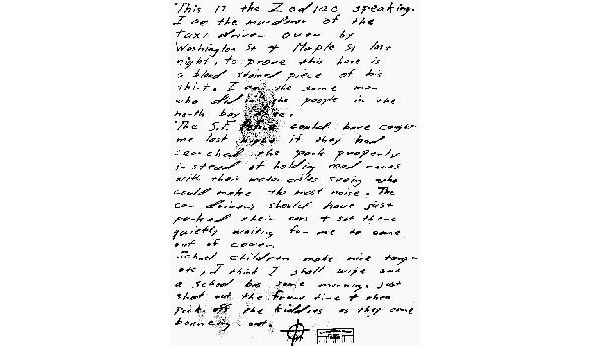 This is the Zodiac speaking.
I am the murderer of the
taxi driver over by
Washington St & Maple St last
night, to prove this here is
a blood stained piece of his
shirt. I am the same man
who did in the people in the
north bay area.
The S.F. Police could have caught
me last night if they had
searched the park properly
instead of holding road races
with their motorcicles seeing who
could make the most noise. The
car drivers should have just
parked their cars & sat there
quietly waiting for me to come
out of cover.
School children make nice targ-
ets, I think I shall wipe out
a school bus some morning. Just
shoot out the front tire & then
pick off the kiddies as they come
bouncing out.